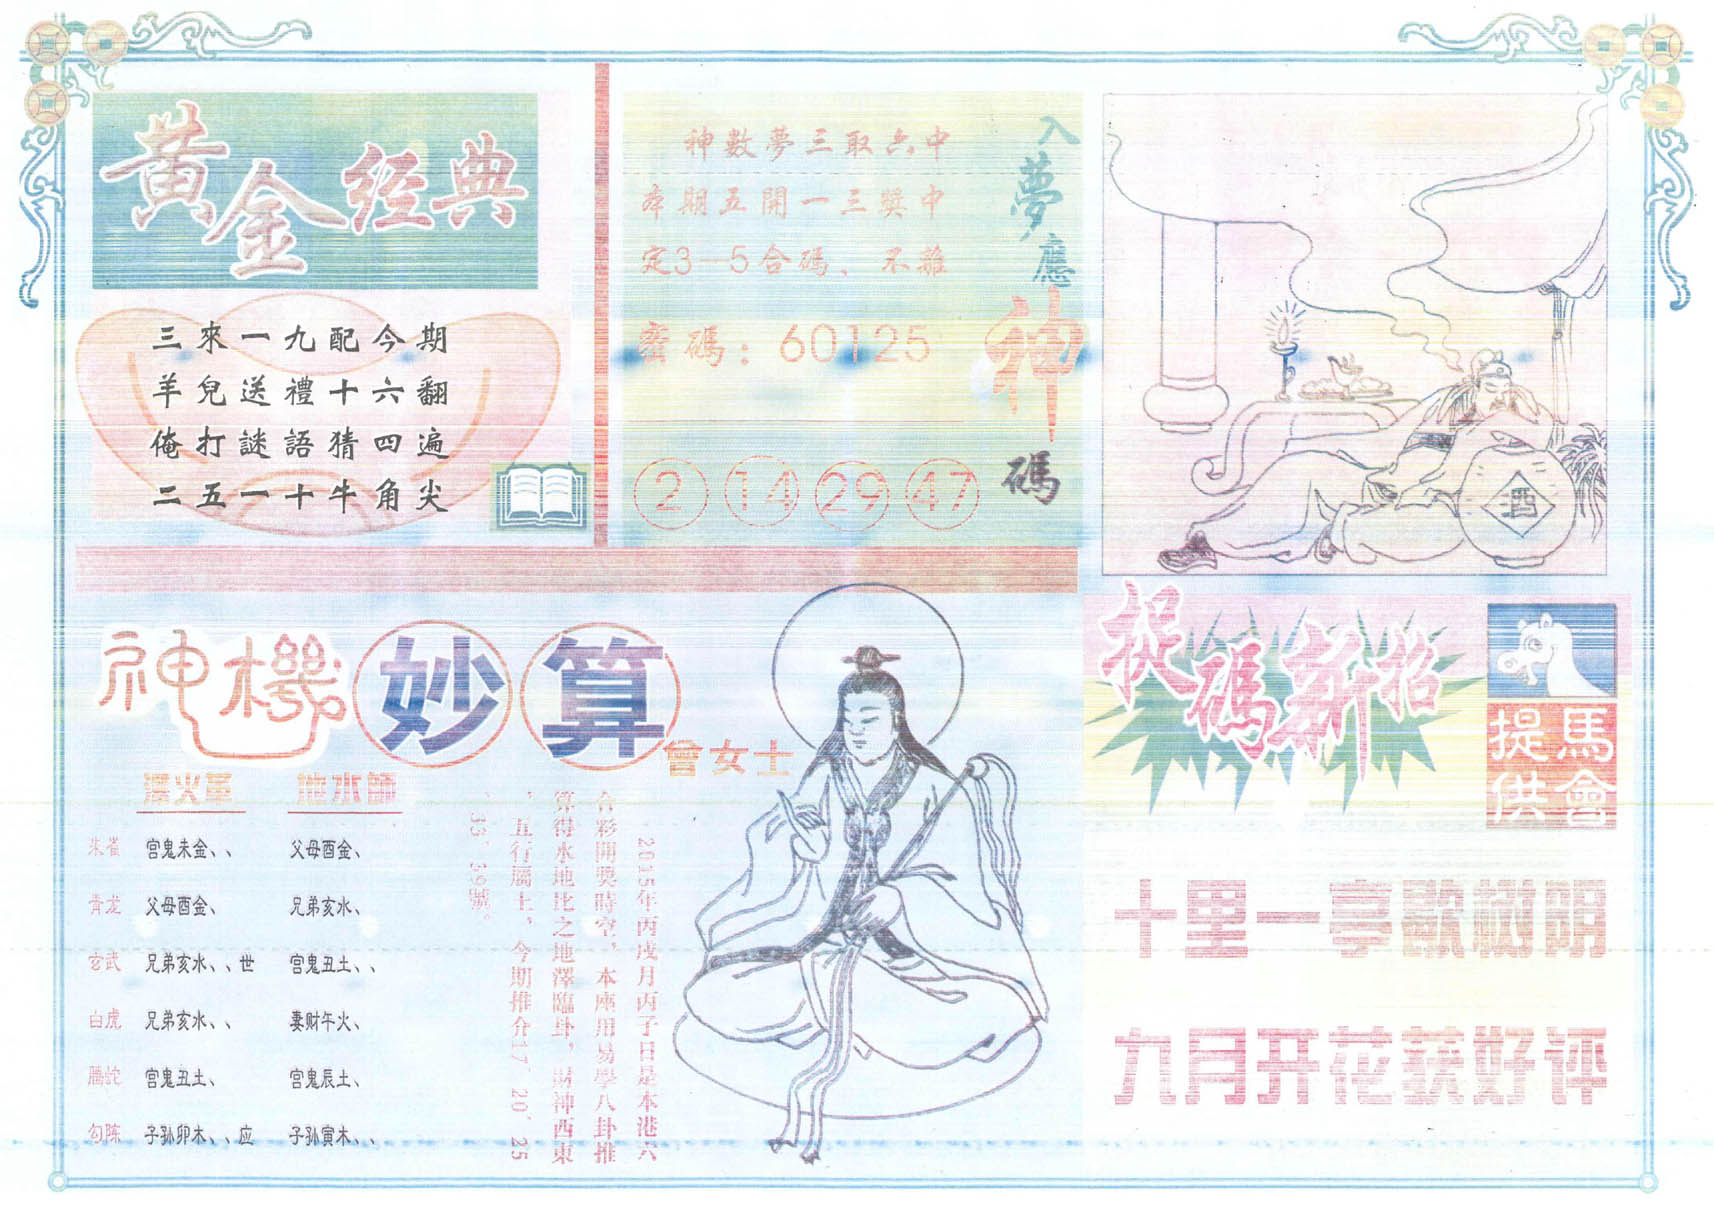 黃金经典
三來一九配今期
羊兒送禮十六翻
俺打謎語猜四遍
二五一十牛角尖
神數夢三取六中
本期五開一三獎中
定3—5合碼、不離
密碼：60125
2 14 29 47
入夢應神碼
酒
神機妙算
曾女士
澤火革 地水師
朱雀 宫鬼未金、、 父母酉金、
青龙 父母酉金、 兄弟亥水、
玄武 兄弟亥水、、世 宫鬼丑土、、
白虎 兄弟亥水、、 妻财午火、
螣蛇 宫鬼丑土、 宫鬼辰土、
勾陈 子孙卯木、、应 子孙寅木、、
2015年丙戌月丙子日是本港六
合彩開獎時空，本座用易學八卦推
算得水地比之地澤臨卦，財神西東
，五行屬土，今期推介17、20、25
、33、39號。
捉碼新招
馬會提供
十里一亭歇树明
九月开花获好评